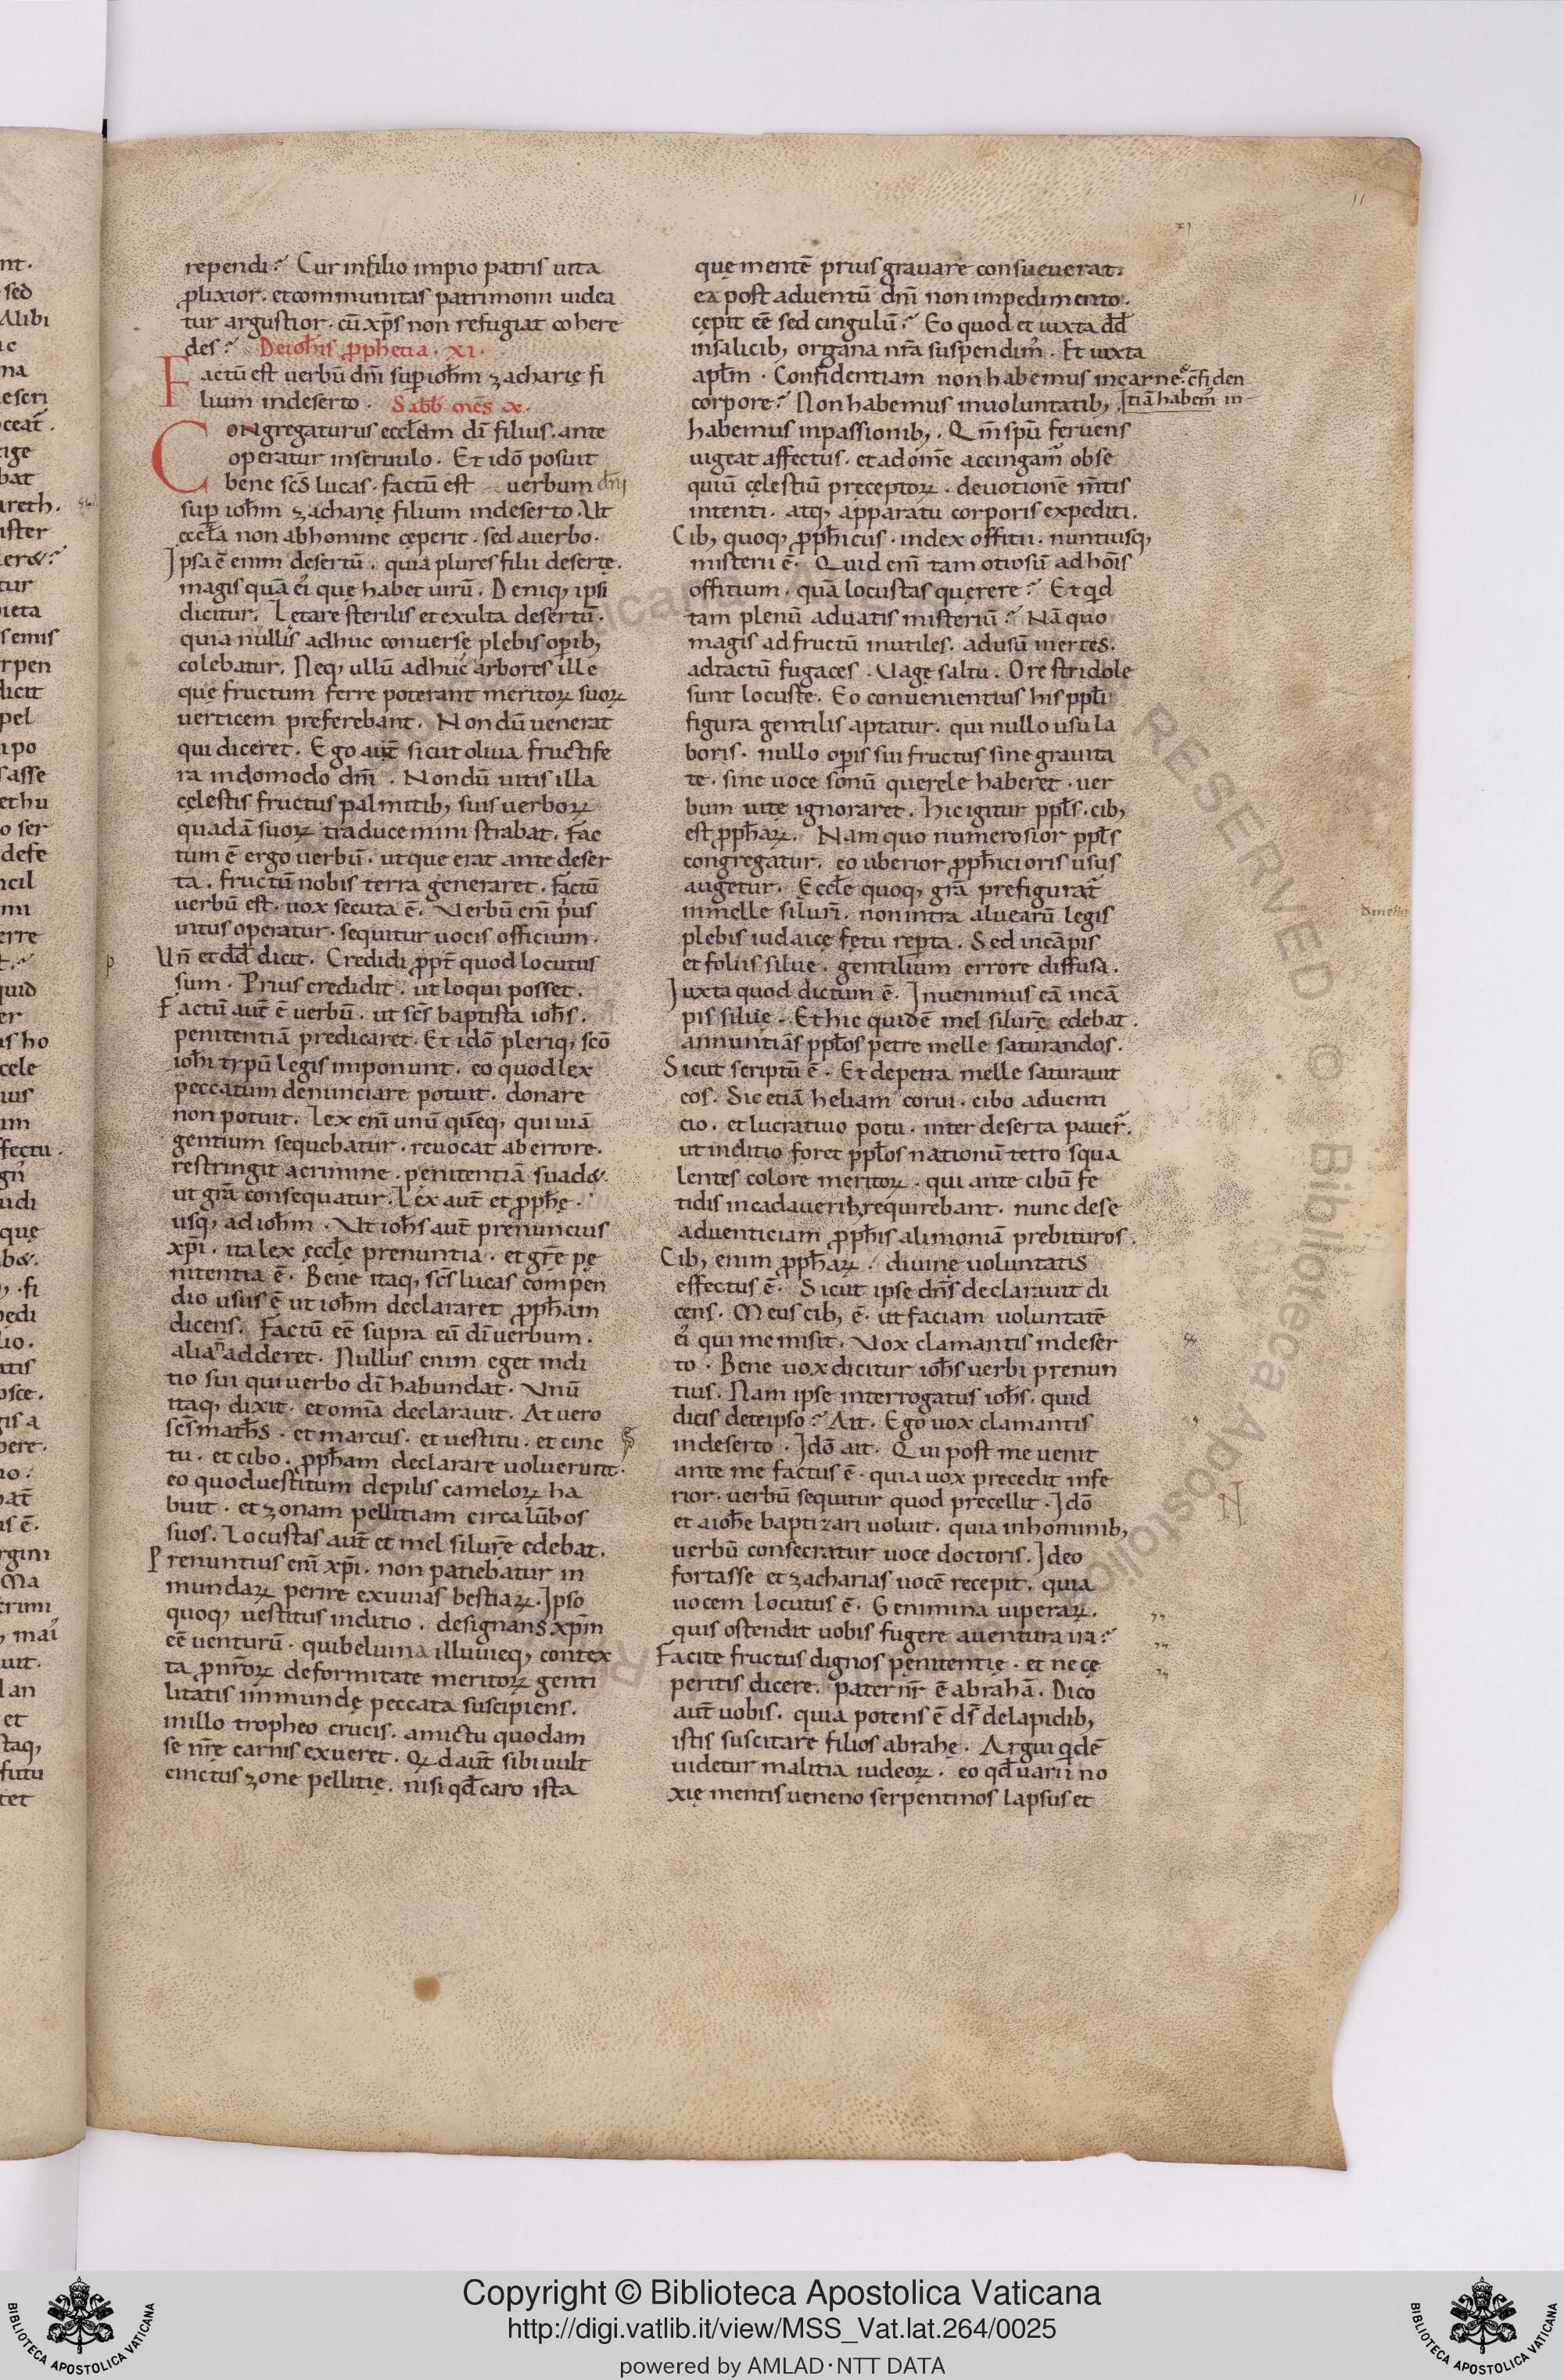 11
xi
rependi? Cur in filio impio patris uita
ꝓlixior. et communitas patrimonii uidea
tur angustior. cū xp̄s non refugiat cohere
des? De ioh̄is ꝓphetia. XI.
Factū est uerbū dn̄i sup̱ ioh̄m zacharię fi
lium in deserto. Sabb̄ m̄es x.
Congregaturus eccl̄am dī filius. ante
operatur in seruulo. Et idō posuit
bene sc̄s lucas. factū est uerbum dn̄i
sup̱ ioh̄m zacharię filium in deserto. Ut
eccl̄a non ab homine cęperit. sed a uerbo.
Ipsa ē enim desertū. quia plures filii desertę.
magis quā ei᾽ que habet uirū. Deniq; ipsi
dicitur. Lętare sterilis et exulta desertū.
quia nullis adhuc conuersę plebis op̱ib;
colebatur. Neq; ullū adhuc arbores ille
quę fructum ferre poterant meritoꝝ suoꝝ
uerticem preferebant. Nondū uenerat
qui diceret. Ego aut̄ sicut oliua fructife
ra in domo do dn̄i. Nondū uitis illa
cęlestis fructus palmitib; suis uerboꝝ
quadā suoꝝ traduce ministrabat. Fac
tum ē ergo uerbū. ut que erat ante deser
ta. fructū nobis terra generaret. Factū
uerbū est. uox secuta ē. Verbū enī pius
intus operatur. sequitur uocis officium.
Un̄ et dd̄ dicit. Credidi ꝓpt̄ quod locutus
sum. Prius credidit. ut loqui posset.
Factū aut̄ ē uerbū. ut sc̄s baptista ioh̄s.
penitentiā predicaret. Et idō pleriq; sc̄o
ioh̄i typū legis imponunt. eo quod lex
peccatum denunciare potuit. donare
non potuit. Lex enī unū quēq; qui uiā
gentium sequebatur. reuocat ab errore.
restringit a crimine. penitentiā suad&.
ut gr̄a consequatur. Lex aut̄ et ꝓph̄ę.
usq; ad ioh̄m. Ut ioh̄s aut̄ prenuncius
xp̄i. ita lex ęccl̄ę prenuntia. et gr̄e pę
nitentia ē. Bene itaq; sc̄s lucas compen
dio usus ē ut ioh̄m declararet ꝓph̄am
dicens. Factū eē supra eū dī uerbum.
alia n̄ adderet. Nullus enim eget indi
tio sui qui uerbo dī habundat. Vnū
itaq; dixit. et om̄ia declarauit. At uero
sc̄s math̄s. et marcus. et uestitu. et cinc
tu. et cibo. ꝓph̄am declarare uoluerunt.
eo quod uestitum de pilis cameloꝝ ha
buit. et zonam pellitiam circa lūbos
suos. Locustas aut̄ et mel silur̄e edebat.
Prenuntius enī xp̄i. non patiebatur in
mundaꝝ perire exuuias bestiaꝝ. Ipso
quoq; uestitus inditio. designans xp̄m
eē uenturū. qui beluina illuuieq; contex
ta ꝓ nr̄oꝝ deformitate meritoꝝ genti
litatis immundę peccata suscipiens.
in illo tropheo crucis. amictu quodam
se nr̄ę carnis exueret. Qd aut̄ sibi uult
cinctus zonę pellitię. nisi qd̄ caro ista
quę mentē prius grauare consueuerat.
ea post aduentū dn̄i non impedimento.
cępit eē sed cingulū? Eo quod et iuxta dd̄
in salicib; organa nr̄a suspendim᾽. Et iuxta
apl̄m. Confidentiam non habemus in carne. c̄fiden
corpore? Non habemus in uoluntatib; tiā habem᾽ in
habemus in passionib;. Qm̄ spū feruens
uigeat affectus. et ad om̄e accingam᾽ obse
quiū cęlestiū pręceptoꝝ. deuotionē m̄tis
intenti. atq; apparatu corporis expediti.
Cib; quoq; ꝓph̄icus. index offitii. nuntiusq;
misterii ē. Quid enī tam otiosū ad hōis
offitium. quā locustas querere? Et qid
tam plenū ad uatis misteriū? Nā quo
magis ad fructū inutiles. ad usū inertes.
ad tactū fugaces. Uagę saltu. Ore stridole
sunt locustę. Eo conuenientius his ppl̄i
figura gentilis aptatur. qui nullo usu la
boris. nullo op̱is sui fructus sine grauita
te. sine uoce sonū querele haberet. uer
bum uitę ignoraret. Hic igitur ppl̄s. cib;
est ꝓph̄aꝝ. Nam quo numerosior ppl̄s
congregatur. eo uberior ꝓph̄ici oris usus
augetur. Eccl̄e quoq; gr̄a prefigurat᾽
in melle siluri. non intra aluearū legis
plebis iudaicę fętu rep̱ta. Sed in cāpis
et foliis siluę. gentilium errore diffusa.
Iuxta quod dictum ē. Inuenimus eā in cā
pis siluę. Et hic quidē mel siluŕe edebat.
annuntiās ppl̄os petre melle saturandos.
Sicut scriptū ē. Et de petra melle saturauit
eos. Sic etiā heliam corui. cibo aduenti
cio. et lucratiuo potu. inter deserta pauer̄.
ut inditio foret ppl̄os nationū tetro squa
lentes colore meritoꝝ. qui ante cibū fę
tidis in cadauerib; requirebant. nunc de se
aduenticiam ꝓph̄is alimoniā prebituros.
Cib; enim ꝓph̄aꝝ. diuinę uoluntatis
effectus ē. Sicut ipse dn̄s declarauit di
cens. Meus cib; ē. ut faciam uoluntatē
ei᾽ qui me misit. Vox clamantis in deser
to. Bene uox dicitur ioh̄s uerbi prenun
tius. Nam ipse interrogatus ioh̄s. quid
dicis de te ipso? Ait. Ego uox clamantis
in deserto. Idō ait. Qui post me uenit
ante me factus ē. quia uox precedit infe
rior. uerbū sequitur quod precellit. Idō
et a ioh̄e baptizari uoluit. quia in hominib;
uerbū consecratur uoce doctoris. Ideo
fortasse et zacharias uocē recepit. quia
uocem locutus ē. Genimina uiperaꝝ.
quis ostendit uobis fugere a uentura ira?
Facite fructus dignos pęnitentię. et ne cę
peritis dicere. pater nr̄ ē abrahā. Dico
aut̄ uobis. quia potens ē ds̄ de lapidib;
istis suscitare filios abrahę. Argui qidē
uidetur malitia iudeoꝝ. eo qd̄ uarii no
xię mentis ueneno serpentinos lapsus et
N
Copyright © Biblioteca Apostolica Vaticana
http://digi.vatlib.it/view/MSS_Vat.lat.264/0025
powered by AMLAD·NTT DATA
BIBLIOTECA APOSTOLICA VATICANA
BIBLIOTECA APOSTOLICA VATICANA